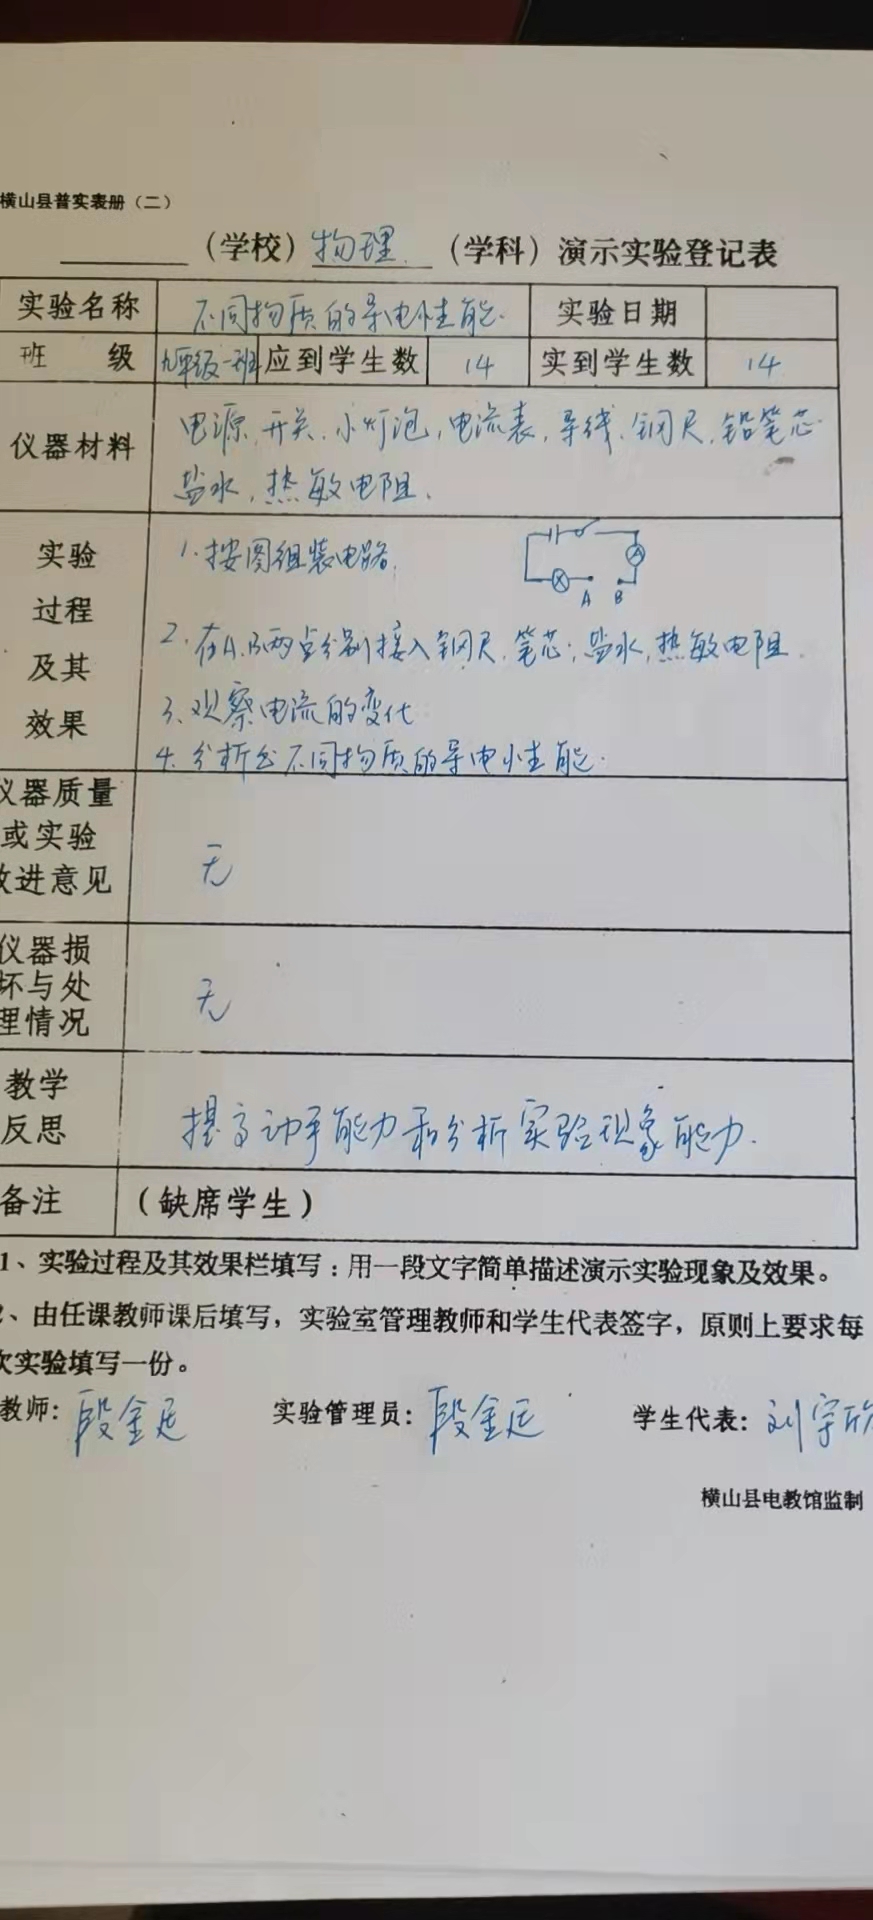 横山县普实表册（二）
（学校）物理（学科）演示实验登记表
实验名称 不同物质的导电性能. 实验日期
班 级 九年级一班 应到学生数 14 实到学生数 14
仪器材料 电源,开关,小灯泡,电流表,导线,钢尺,铅笔芯
盐水,热敏电阻.
实验
过程
及其
效果
1.按图组装电路.
A B
2.在A.B两点分别接入钢尺.笔芯;盐水,热敏电阻.
3.观察电流的变化
4.分析出不同物质的导电性能.
仪器质量
或实验
改进意见
无
仪器损
坏与处
理情况
无
教学
反思
提高动手能力和分析实验现象能力.
备注 （缺席学生）
1、实验过程及其效果栏填写：用一段文字简单描述演示实验现象及效果。
2、由任课教师课后填写，实验室管理教师和学生代表签字，原则上要求每
次实验填写一份。
教师：段金廷 实验管理员：段金廷 学生代表：刘宇欣
横山县电教馆监制